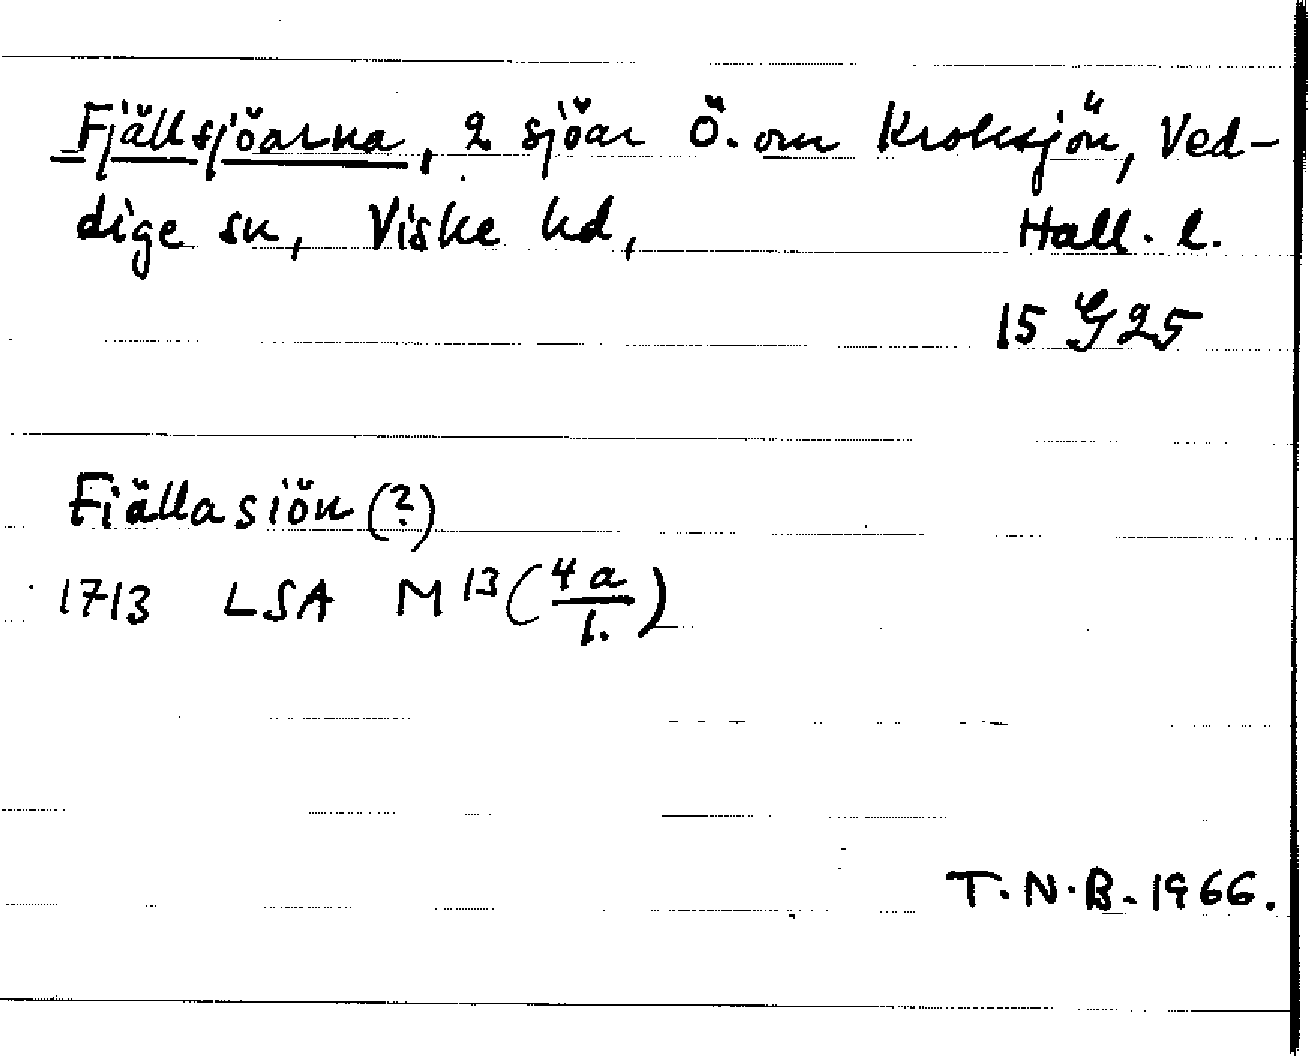 Fjällsjöarna, 2 sjöar Ö. om Kroksjön, Ved-
dige sn, Viske hd, Hall. l.
15 G 25
Fiällasiön (?)
1713 LSA M 13 (4a/1.)
T.N.B. 1966.